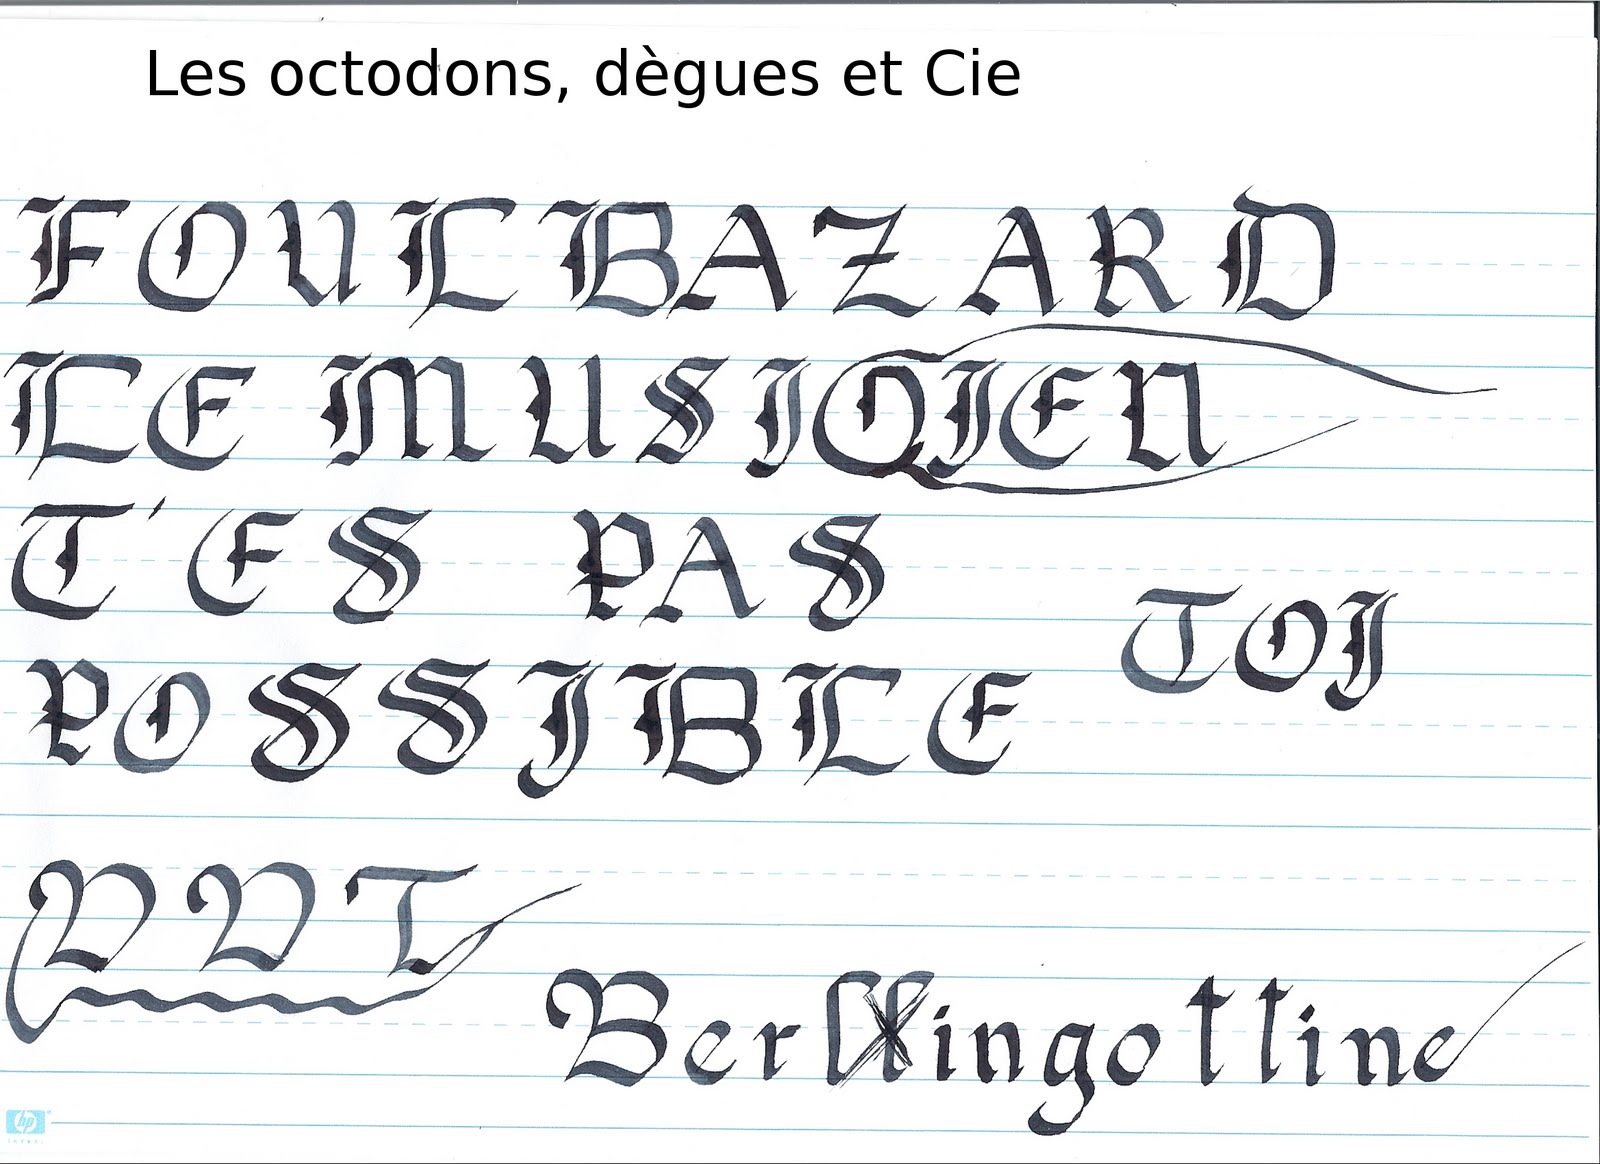 Les octodons, dègues et Cie
FOULBAZARD
LE MUSIQIEN
T'ES PAS
TOI
POSSIBLE
DDT
Berlingottine
hp
invent